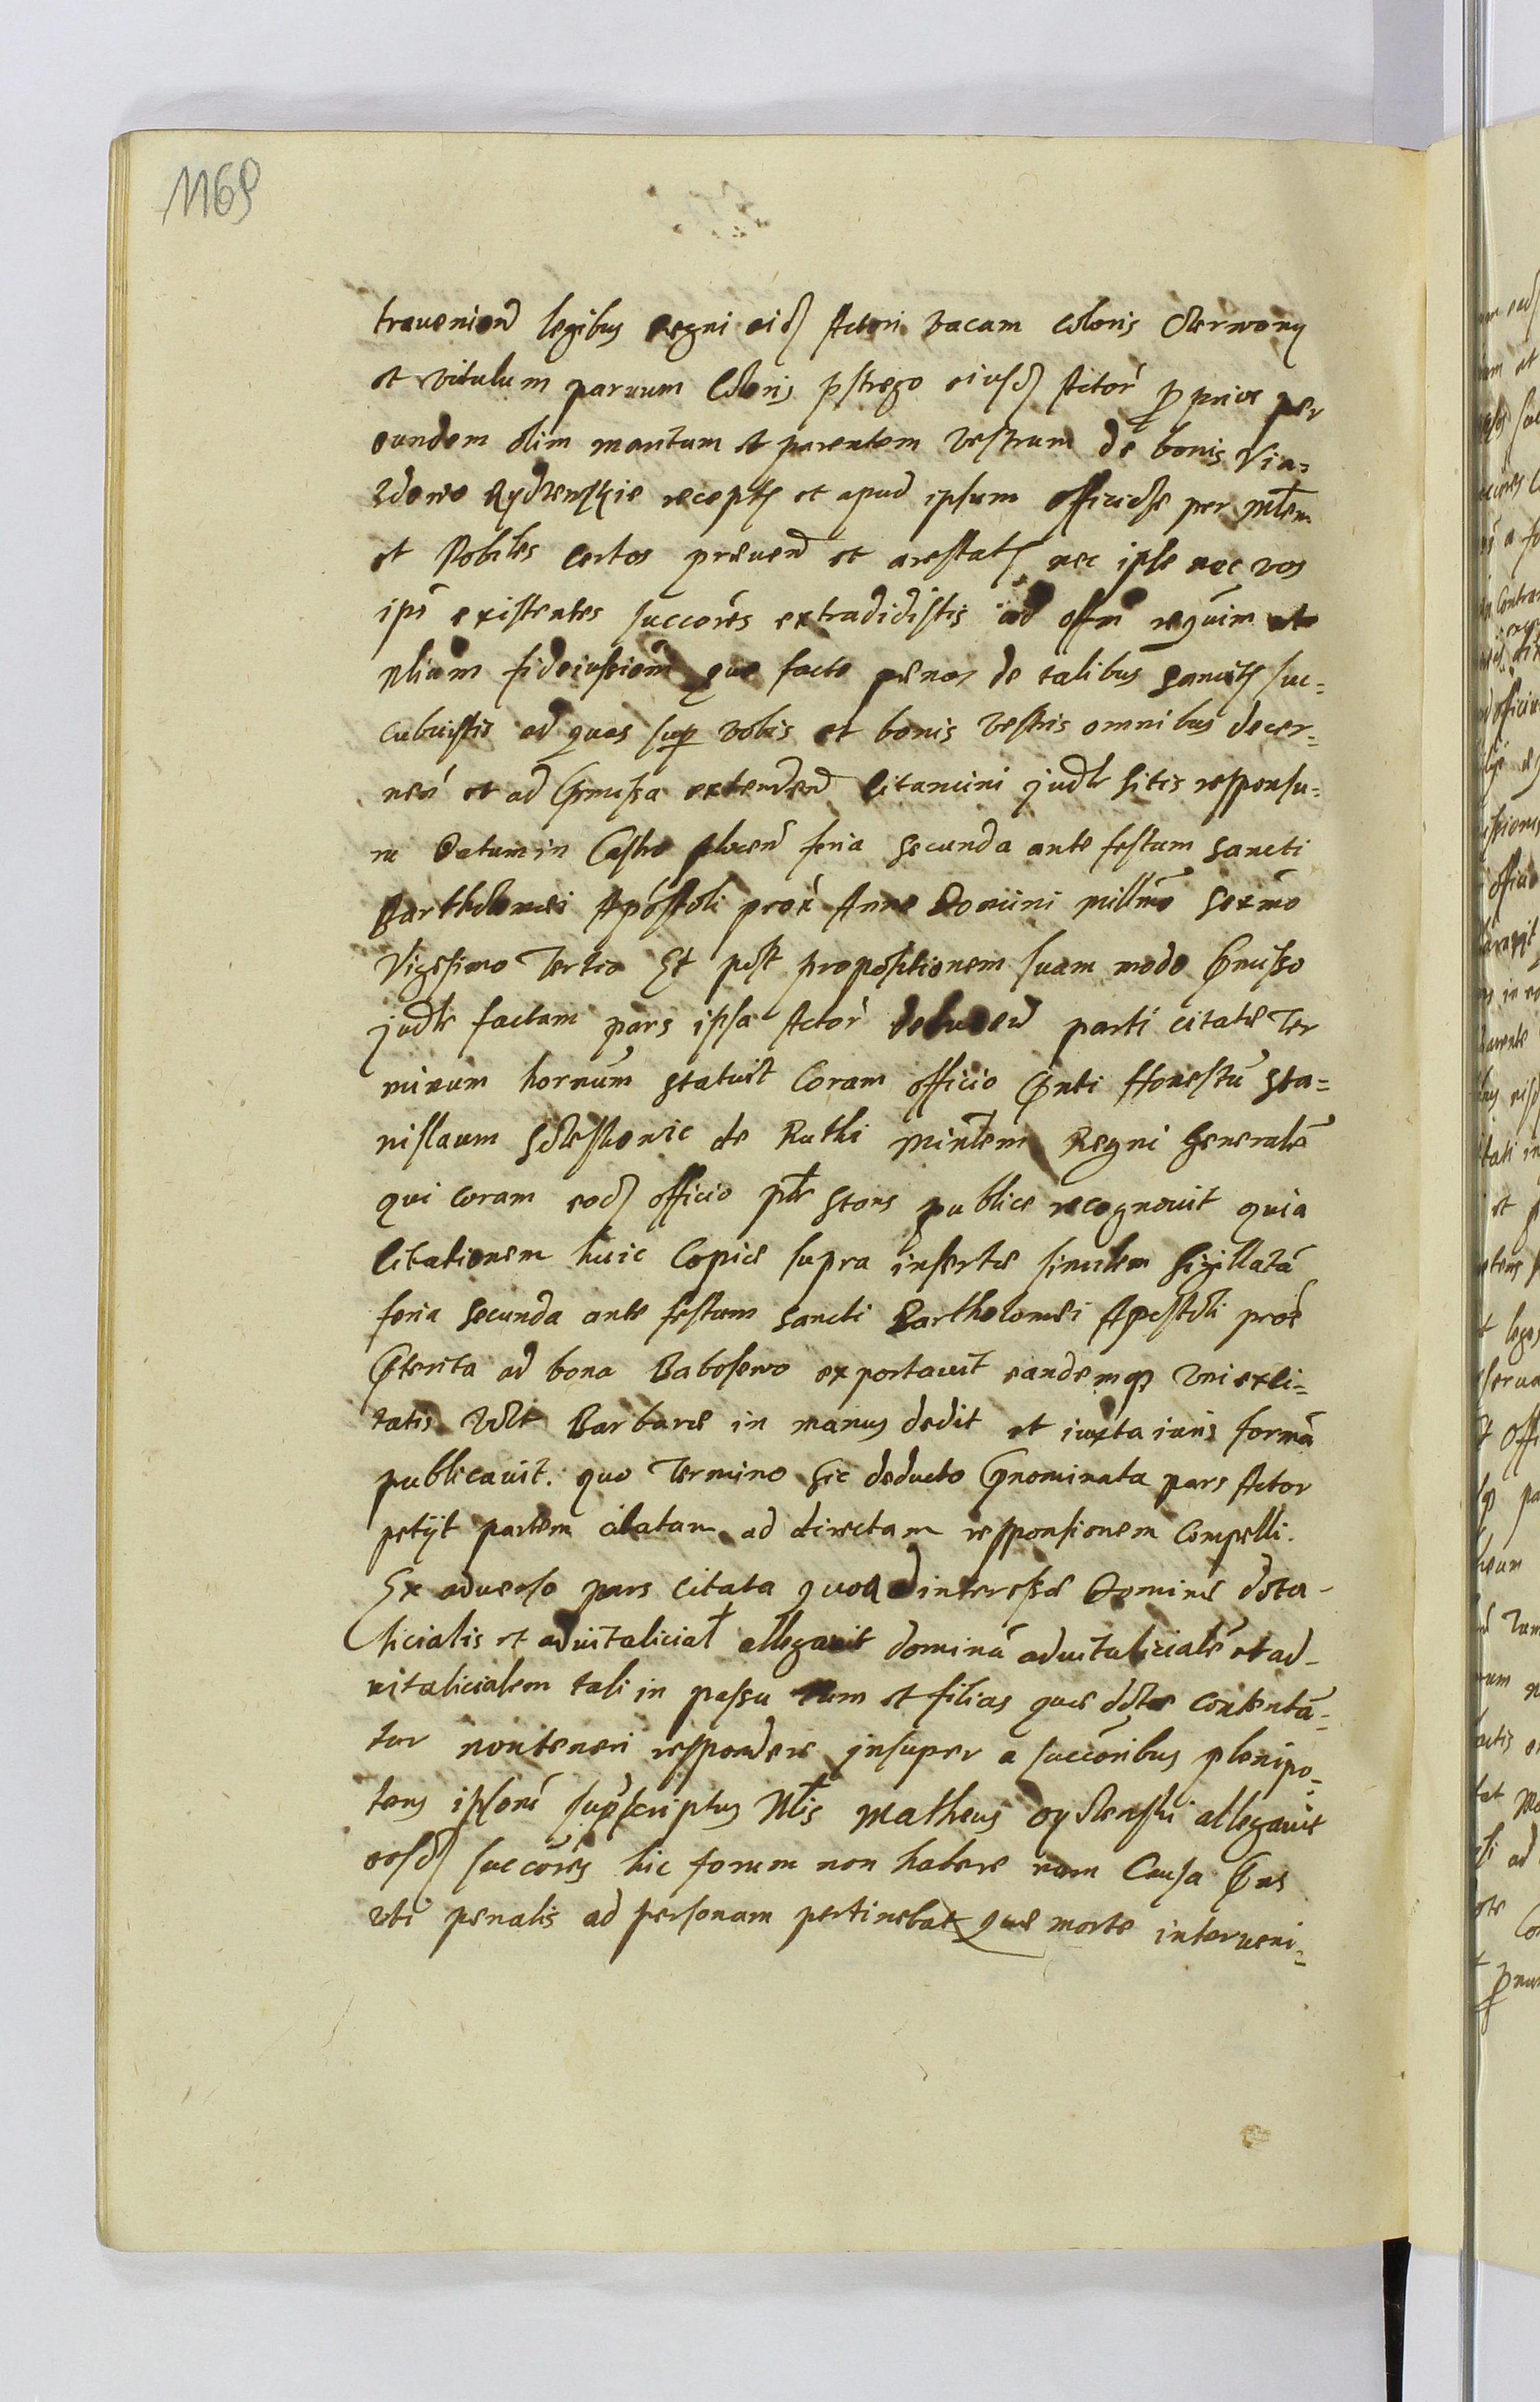 1169
trauenien̄ legibus Regni eid̄ Actori vacam coloris czerwony
et vitulum paruum coloris pstrego eiusd̄ Actoŕ prius per
eundem olim maritum et parentem vestrum de bonis Via=
zdowo recept̄ et apud ipsum officiose per mtem
et Nobiles certos præuen̄ et arestat̄ nec ipse nec vos
ipś existentes succorēs extradidistis ad offm̄ requim
fideiussionē quo facto penas de talibus sancit̄ suc=
cubuistis ad quas sup vobis et bonis vestris omnibus decer=
neń et ad præmissa extenden̄ citamini judłr sitis responsu=
ri Datum in Castro plocen̄ feria Secunda ante festum Sancti
Bartholomei Apostoli prox̄ Anno Domini millmo Sexmo
Vigesimo Tertio Et post propositionem suam modo præmisso
judłr factam pars ipsa Actoŕ parti citatæ Ter
minum hornum̄ statuit Coram officio pnti Honestu Sta=
nislaum de Ruthi Mintem̄ Regni Generalē
qui coram eod̄ officio ptr stans publice recognouit quia
Citationem huic Copiæ supra insertæ similem Sigillatā
feria Secunda ante festum Sancti Bartholomei Apostoli prox̄
præterita ad bona Babosewo exportauit eandemq̨
in manus dedit et iuxta iuris formā
publicauit. quo Termino sic deducto prænominata pars Actor
petijt partem citatam ad directam responsionem Compelli.
Ex aduerso pars Citata quoad interesse Dominæ dota-
licialis et aduitalicial̄ allegauit dominā aduitalicialē et ad-
uitalicialem tali in passu tum et filias quæ dote contentā=
tur non teneri respondere insuper a succōribus plenipo=
tens ipsorū suprascriptus Nłis Matheus allegauit
eosd̄ succōres hic forum non habere nam Causa præns
vti penalis ad personam pertinebat quæ morte interueni=